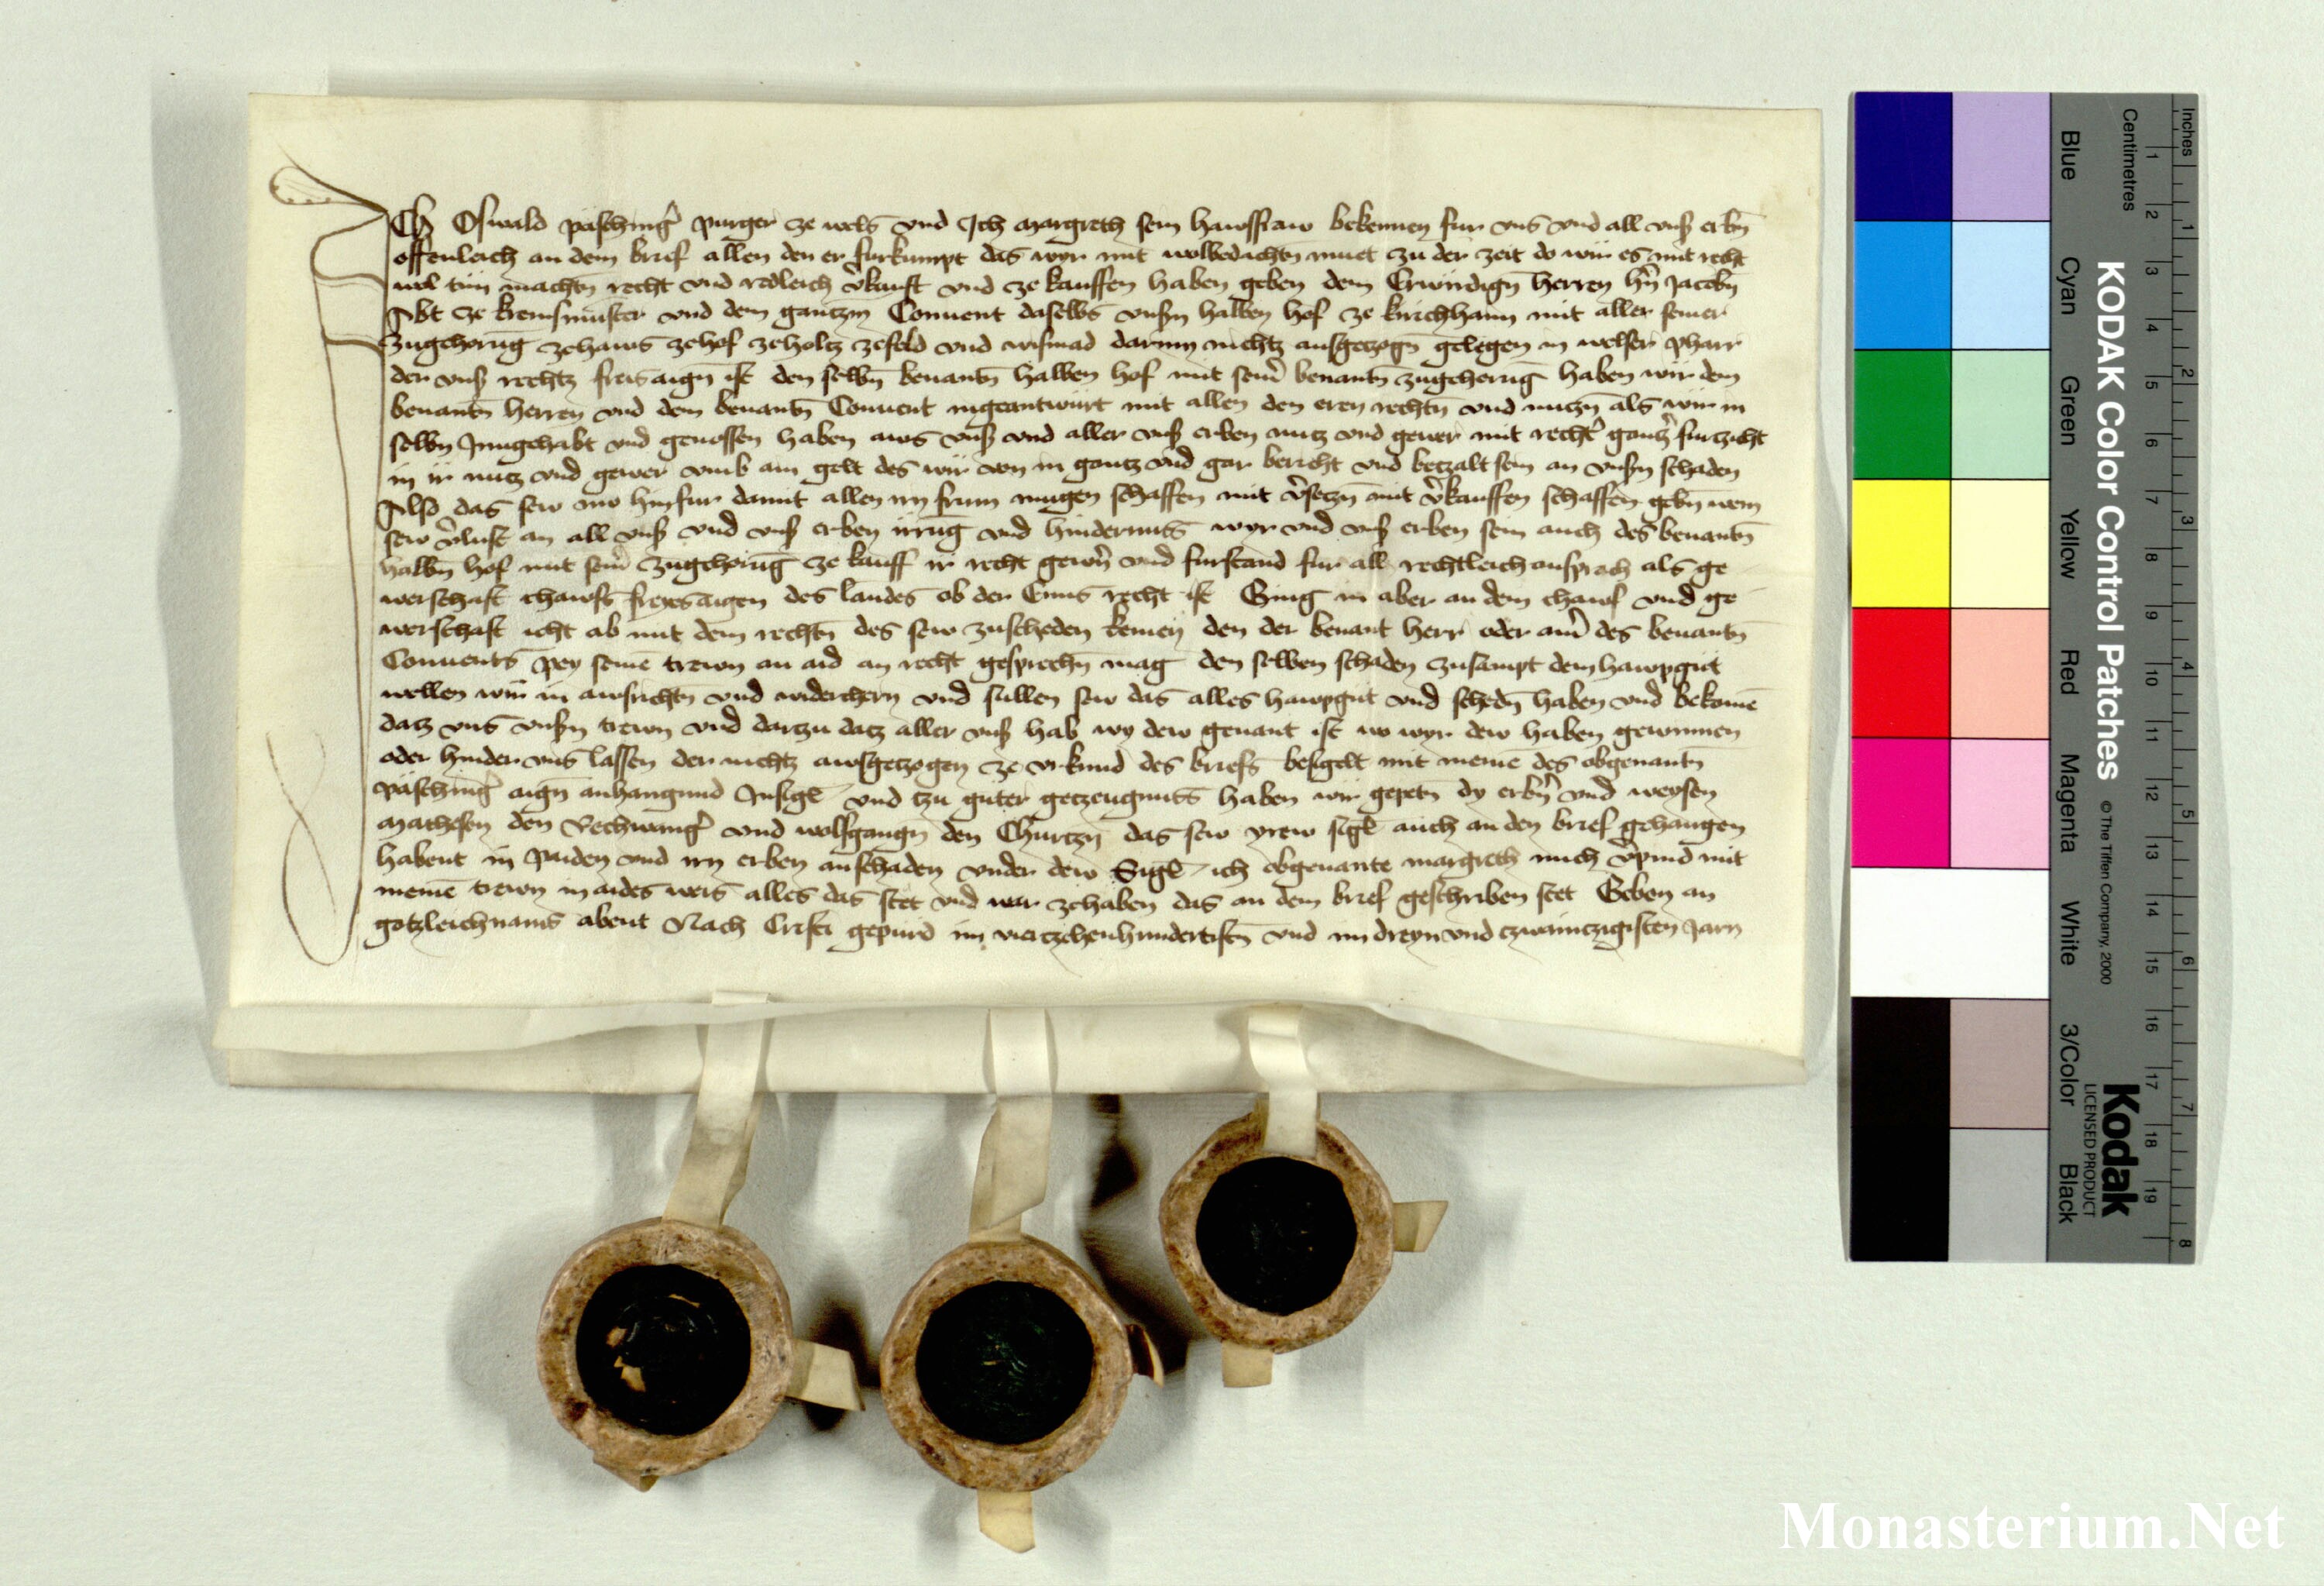 Ich Oswald päsching̉ purger ze wels vnd Ich margreth sein hawsfraw bekennen fur vns vnd all vnſ̉ erbn̄
offenleich an dem brief allen den er furkumpt das wyr mit wolbedachtn̄ muet zu der zeit do wir es mit recht
wol tůn machtn̄ recht vnd redleich v̉kauft vnd ze kauffen haben geben dem Erwirdign̄ herren hn̄ Jacobn̄
Abt ze kremsmüster vnd dem gantzn̄ Conuent daselbs vnſn̄ halben hof ze kirichham mit aller seiner
zugehorūg zehaws zehof zeholtz zefeld vnd wismad darinn nichtz ausgetzogn̄ gelegen in welser pharr
der vnſ̉ rechtz freis aign̄ ist den selbn̄ benantn̄ halben hof mit sein̉ benantn̄ zugehorūg haben wir dem
benantn̄ herren vnd dem benantn̄ Conuent ingeantwurt mit allen den eren rechtn̄ vnd nutzn̄ als wir in
selbn̄ Inngehabt vnd genossen haben aws vnſ̉ vnd aller vnſ̉ erben nutz vnd gewer mit recht̉ gantz̉ furtzicht
in ir nutz vnd gewer vmb ain gelt des wir von in gantz vnd gar bericht vnd betzalt sein an vnſn̄ schaden
Also das sew nw hinfur damit allen irn frum mugen schaffen mit v̉setzn̄ mit v̉kauffen schaffen gebn̄ wem
sew v̉lust an all vnſ̉ vnd vnſ̉ erben irrūg vnd hindernuss wyr vnd vnſ̉ erben sein auch des benantn̄
halbn̄ hof mit sein̉ zugehorūg ze kauff ir recht gewern̉ vnd furstand fur all rechtleich ansprach als ge
werschaft chawfs freyes aigen des landes ob der Enns recht ist Ging in aber an dem chawf vnd ge
werschaft icht ab mit dem rechtn̄ des sew zuscheden kemen den der benant herr oder ain̉ des benantn̄
Conuents pey seinē trewn an aid an recht gesprechn̄ mag den selben schaden zusampt dem hawpgut
wellen wir in awsrichtn̄ vnd widerchern vnd sullen sew das alles hawpgut vnd schedn̄ haben vnd bekomē
datz vns vnſn̄ trewn vnd dartzu datz aller vnſ̉ hab wy dew genant ist wo wyr dew haben gewinnen
oder hinder vns lassen der nichtz awsgetzogen ze vrkund des briefs besigelt mit meinē des obgenantn̄
päsching̉ aign̄ anhangund Insigl̄ vnd tzu guter getzeugnuss haben wir gepetn̄ dy erbn̉ vnd weysen
mathesen den Vechwang̉ vnd wolfgangn̄ den Churtzn̄ das sew yrew sigl̄ auch an den brief gehangen
habent in paiden vnd irn erben an schaden vnder dew Sigl̄ ich obgenante margreth mich v̉pind mit
meinē trewn in aides weis alles das stet vnd war zehaben das an dem brief geschriben stet Geben an
gotzleichnams abent Nach Cristi gepurd im viertzehenhundertistn̄ vnd im dreyn vnd tzwaintzigisten Jarn
KODAK Color Control Patches
© The Tiffen Company, 2000
Kodak
LICENSED PRODUCT
Inches
Centimetres
1 2 3 4 5 6 7 8 9 10 11 12 13 14 15 16 17 18 19
1 2 3 4 5 6 7 8
Blue
Cyan
Green
Yellow
Red
Magenta
White
3/Color
Black
Monasterium.Net